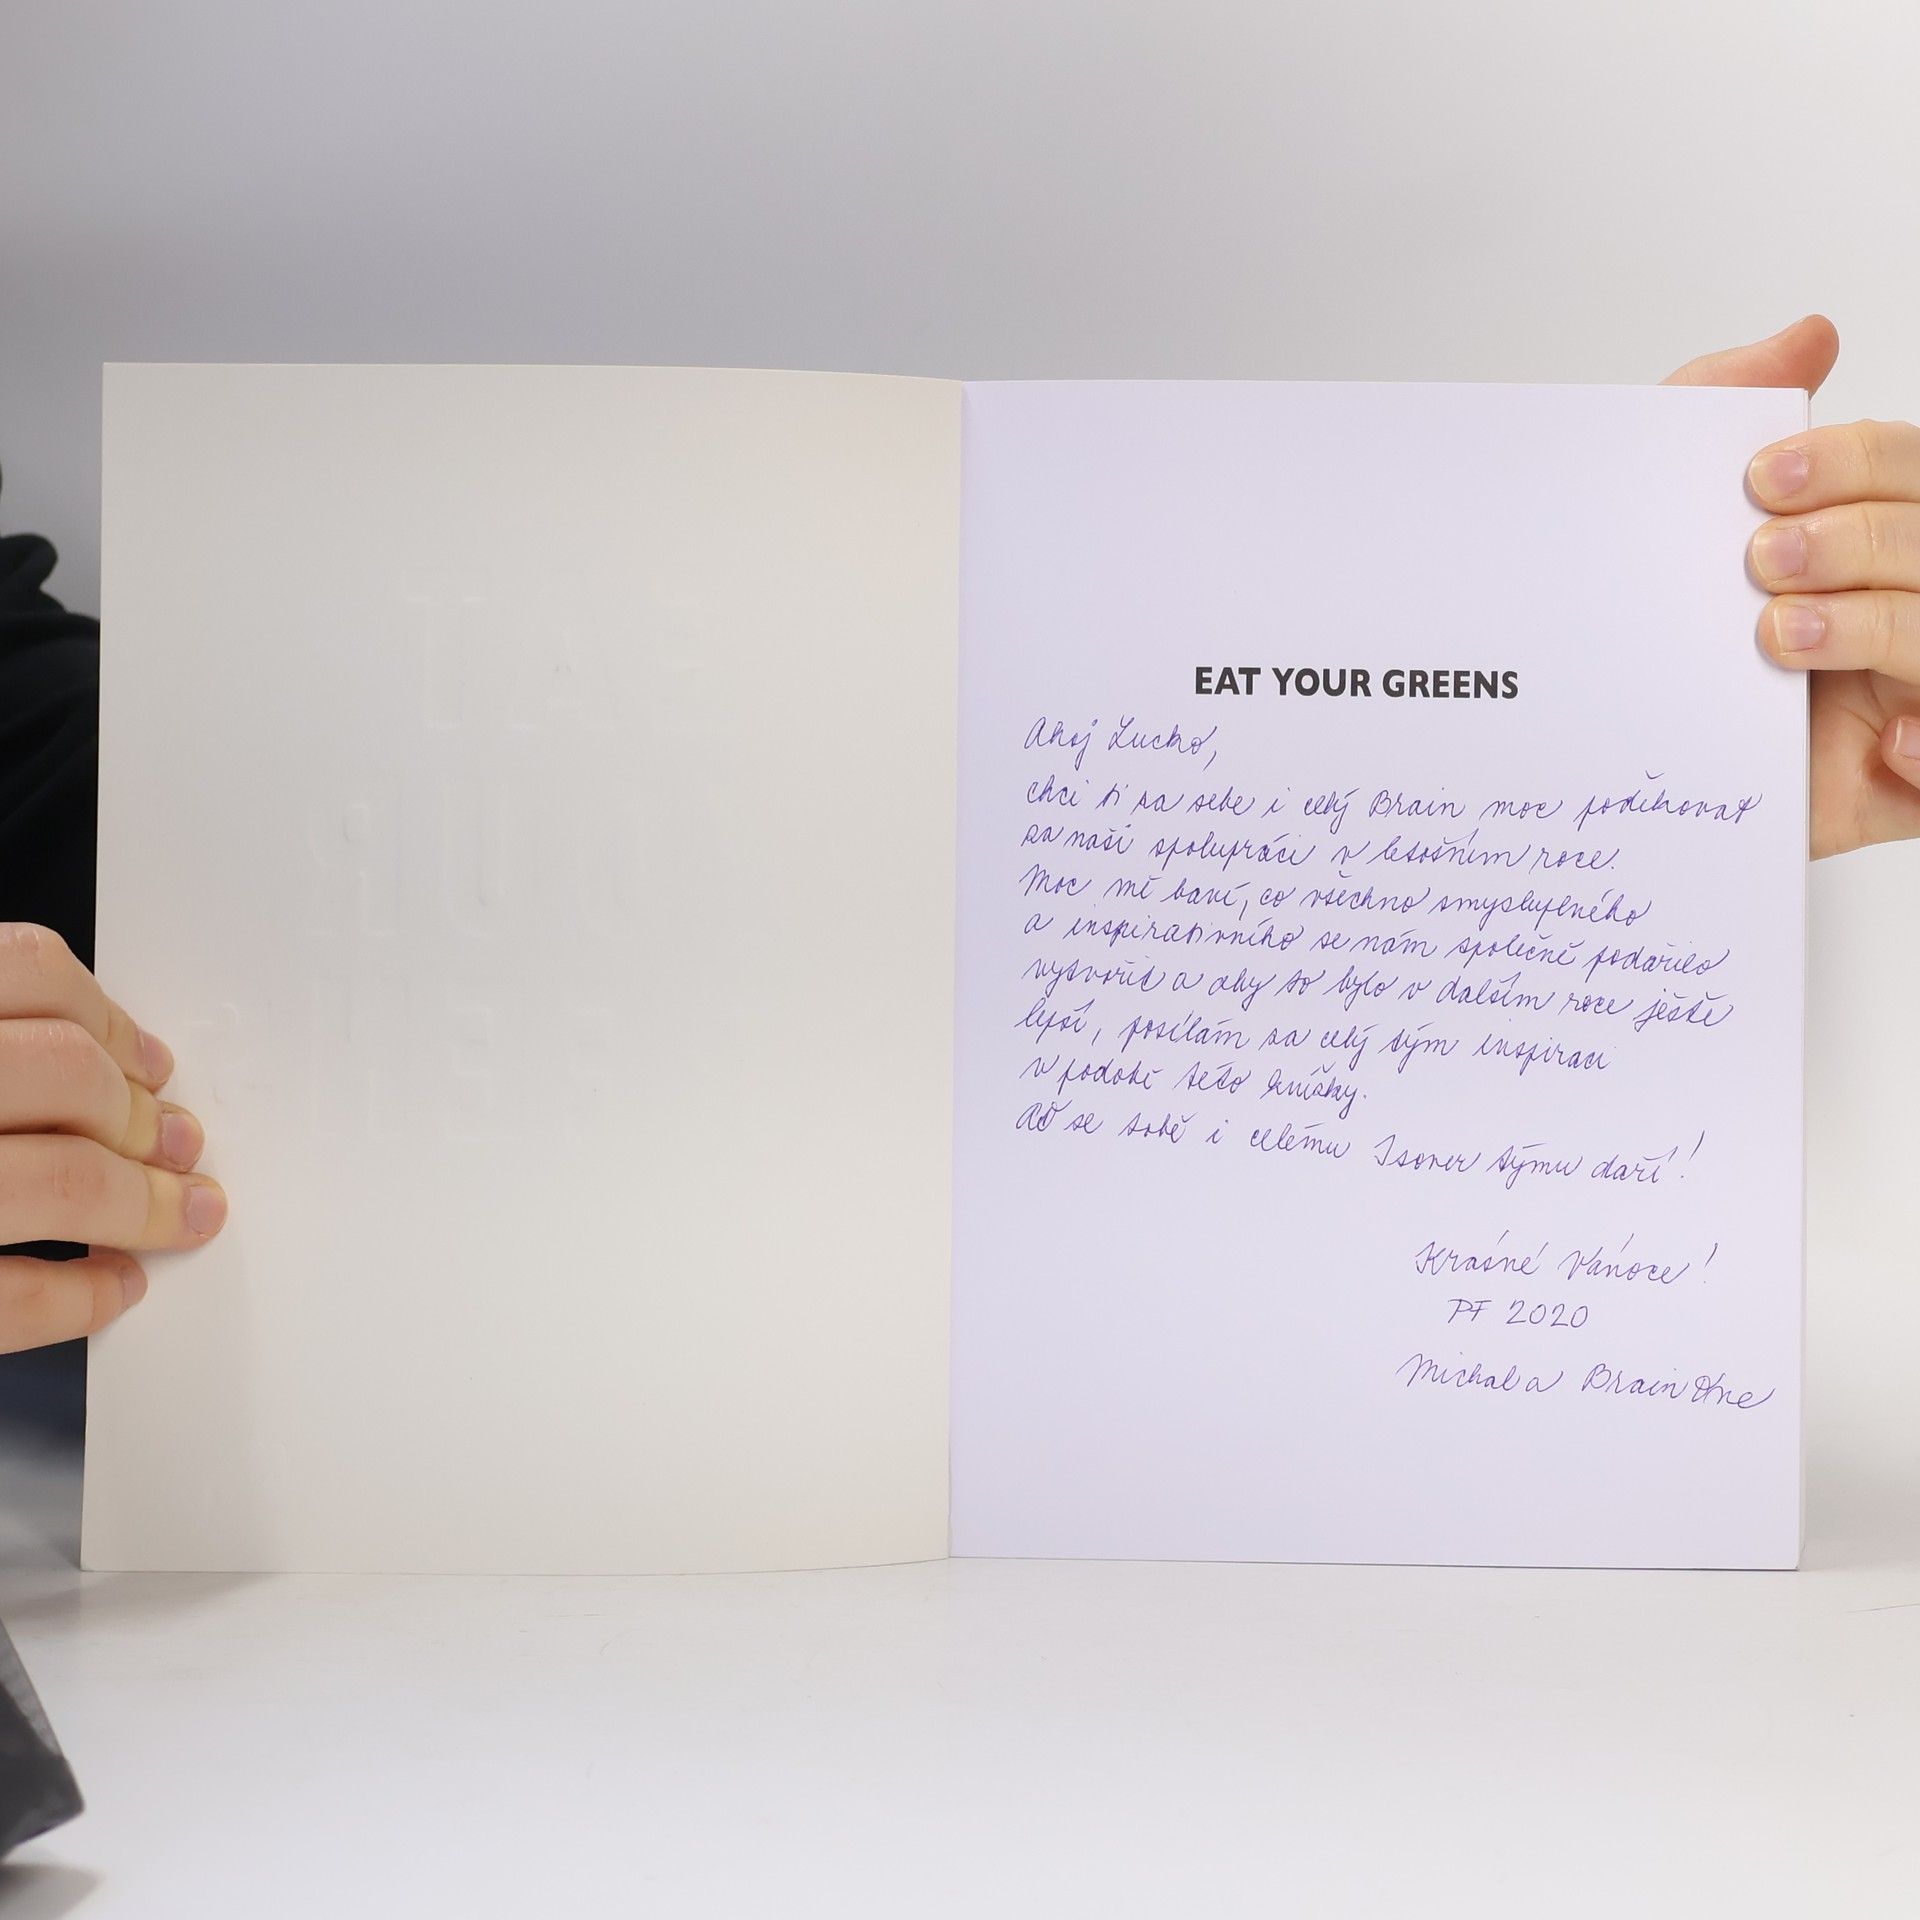 EAT YOUR GREENS
Ahoj Lucko,
chci ti za sebe i celý Brain moc poděkovat
za naši spolupráci v letošním roce.
Moc mě baví, co všechno smysluplného
a inspirativního se nám společně podařilo
vytvořit a aby to bylo v dalším roce ještě
lepší, posílám za celý tým inspiraci
v podobě této knížky.
Ať se tobě i celému Isover týmu daří!
Krásné Vánoce!
PF 2020
Michala Brain One